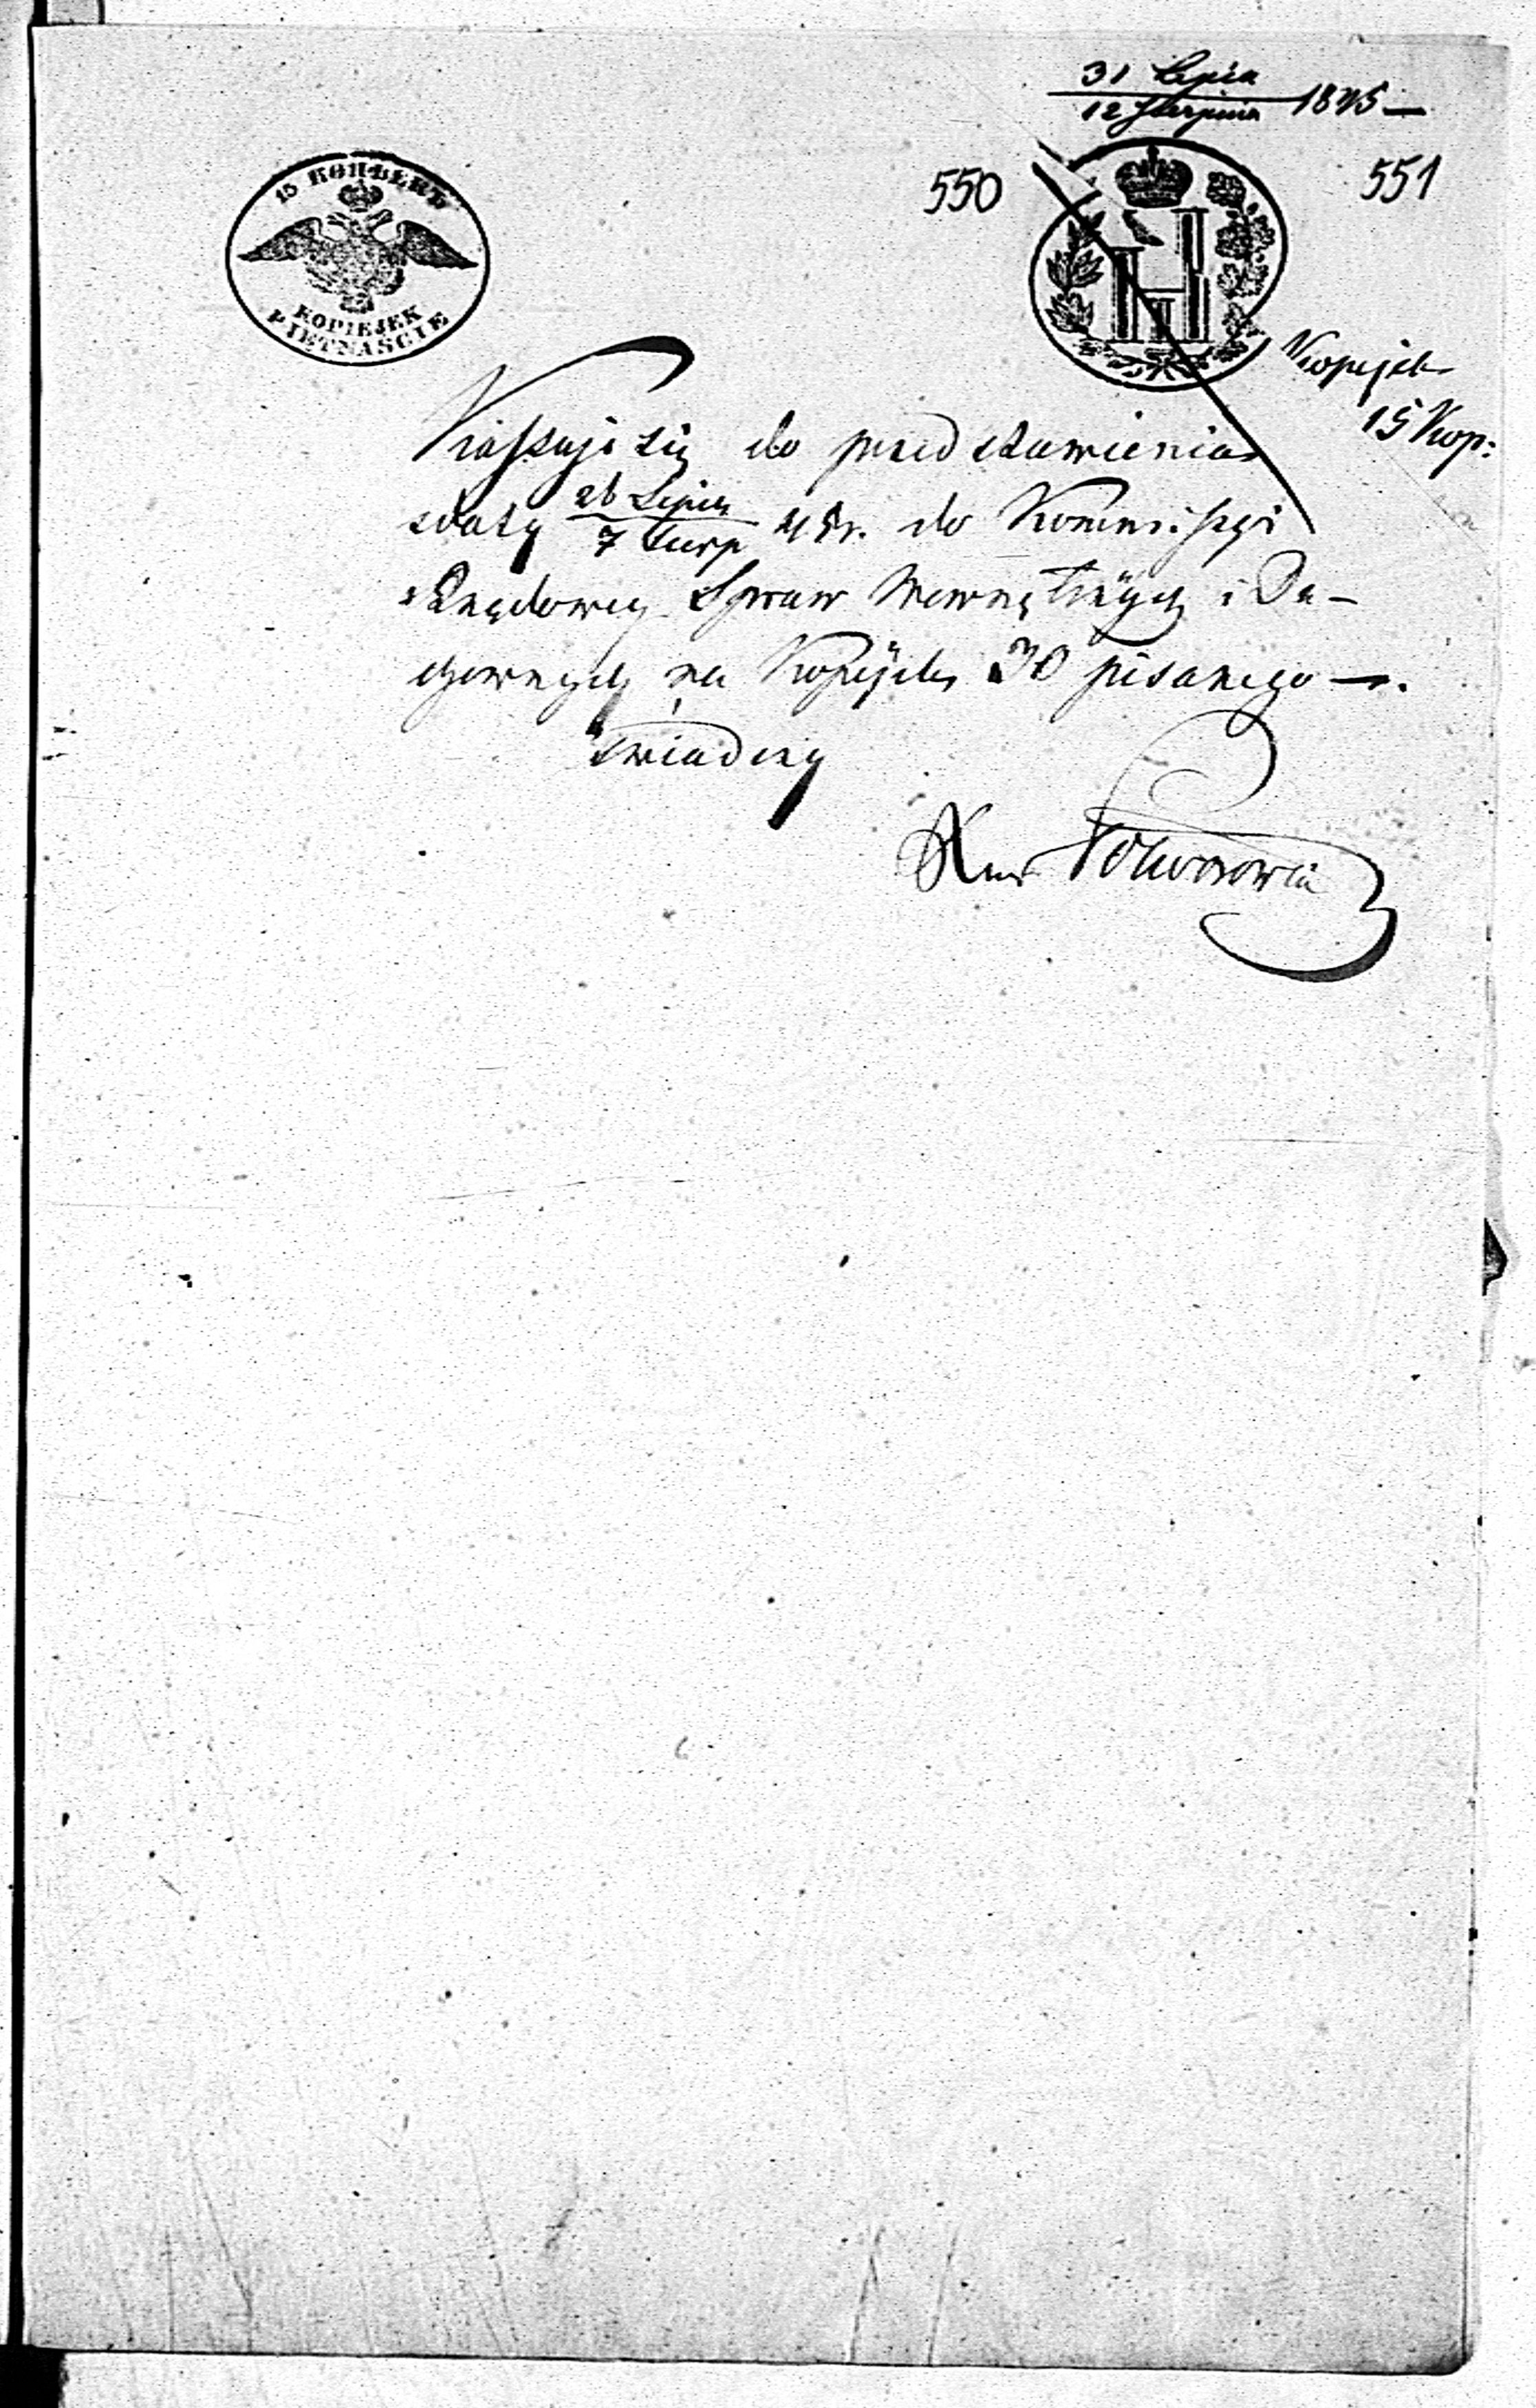 31 Lipca
12 Sierpnia 1845 —
550
551
15 КОПѢЕКЪ
KOPIEJEK
PIĘTNAŚCIE
Kopiejek
15 Kop:
Kassuje się do przedstawienia
z daty 26 Lipca
7 Sierp 45 r. do Kommissyi
Rządowey Spraw Wewnętrzych i Du-
chownych na Kopiejek 30 pisanego —.
Świadczy